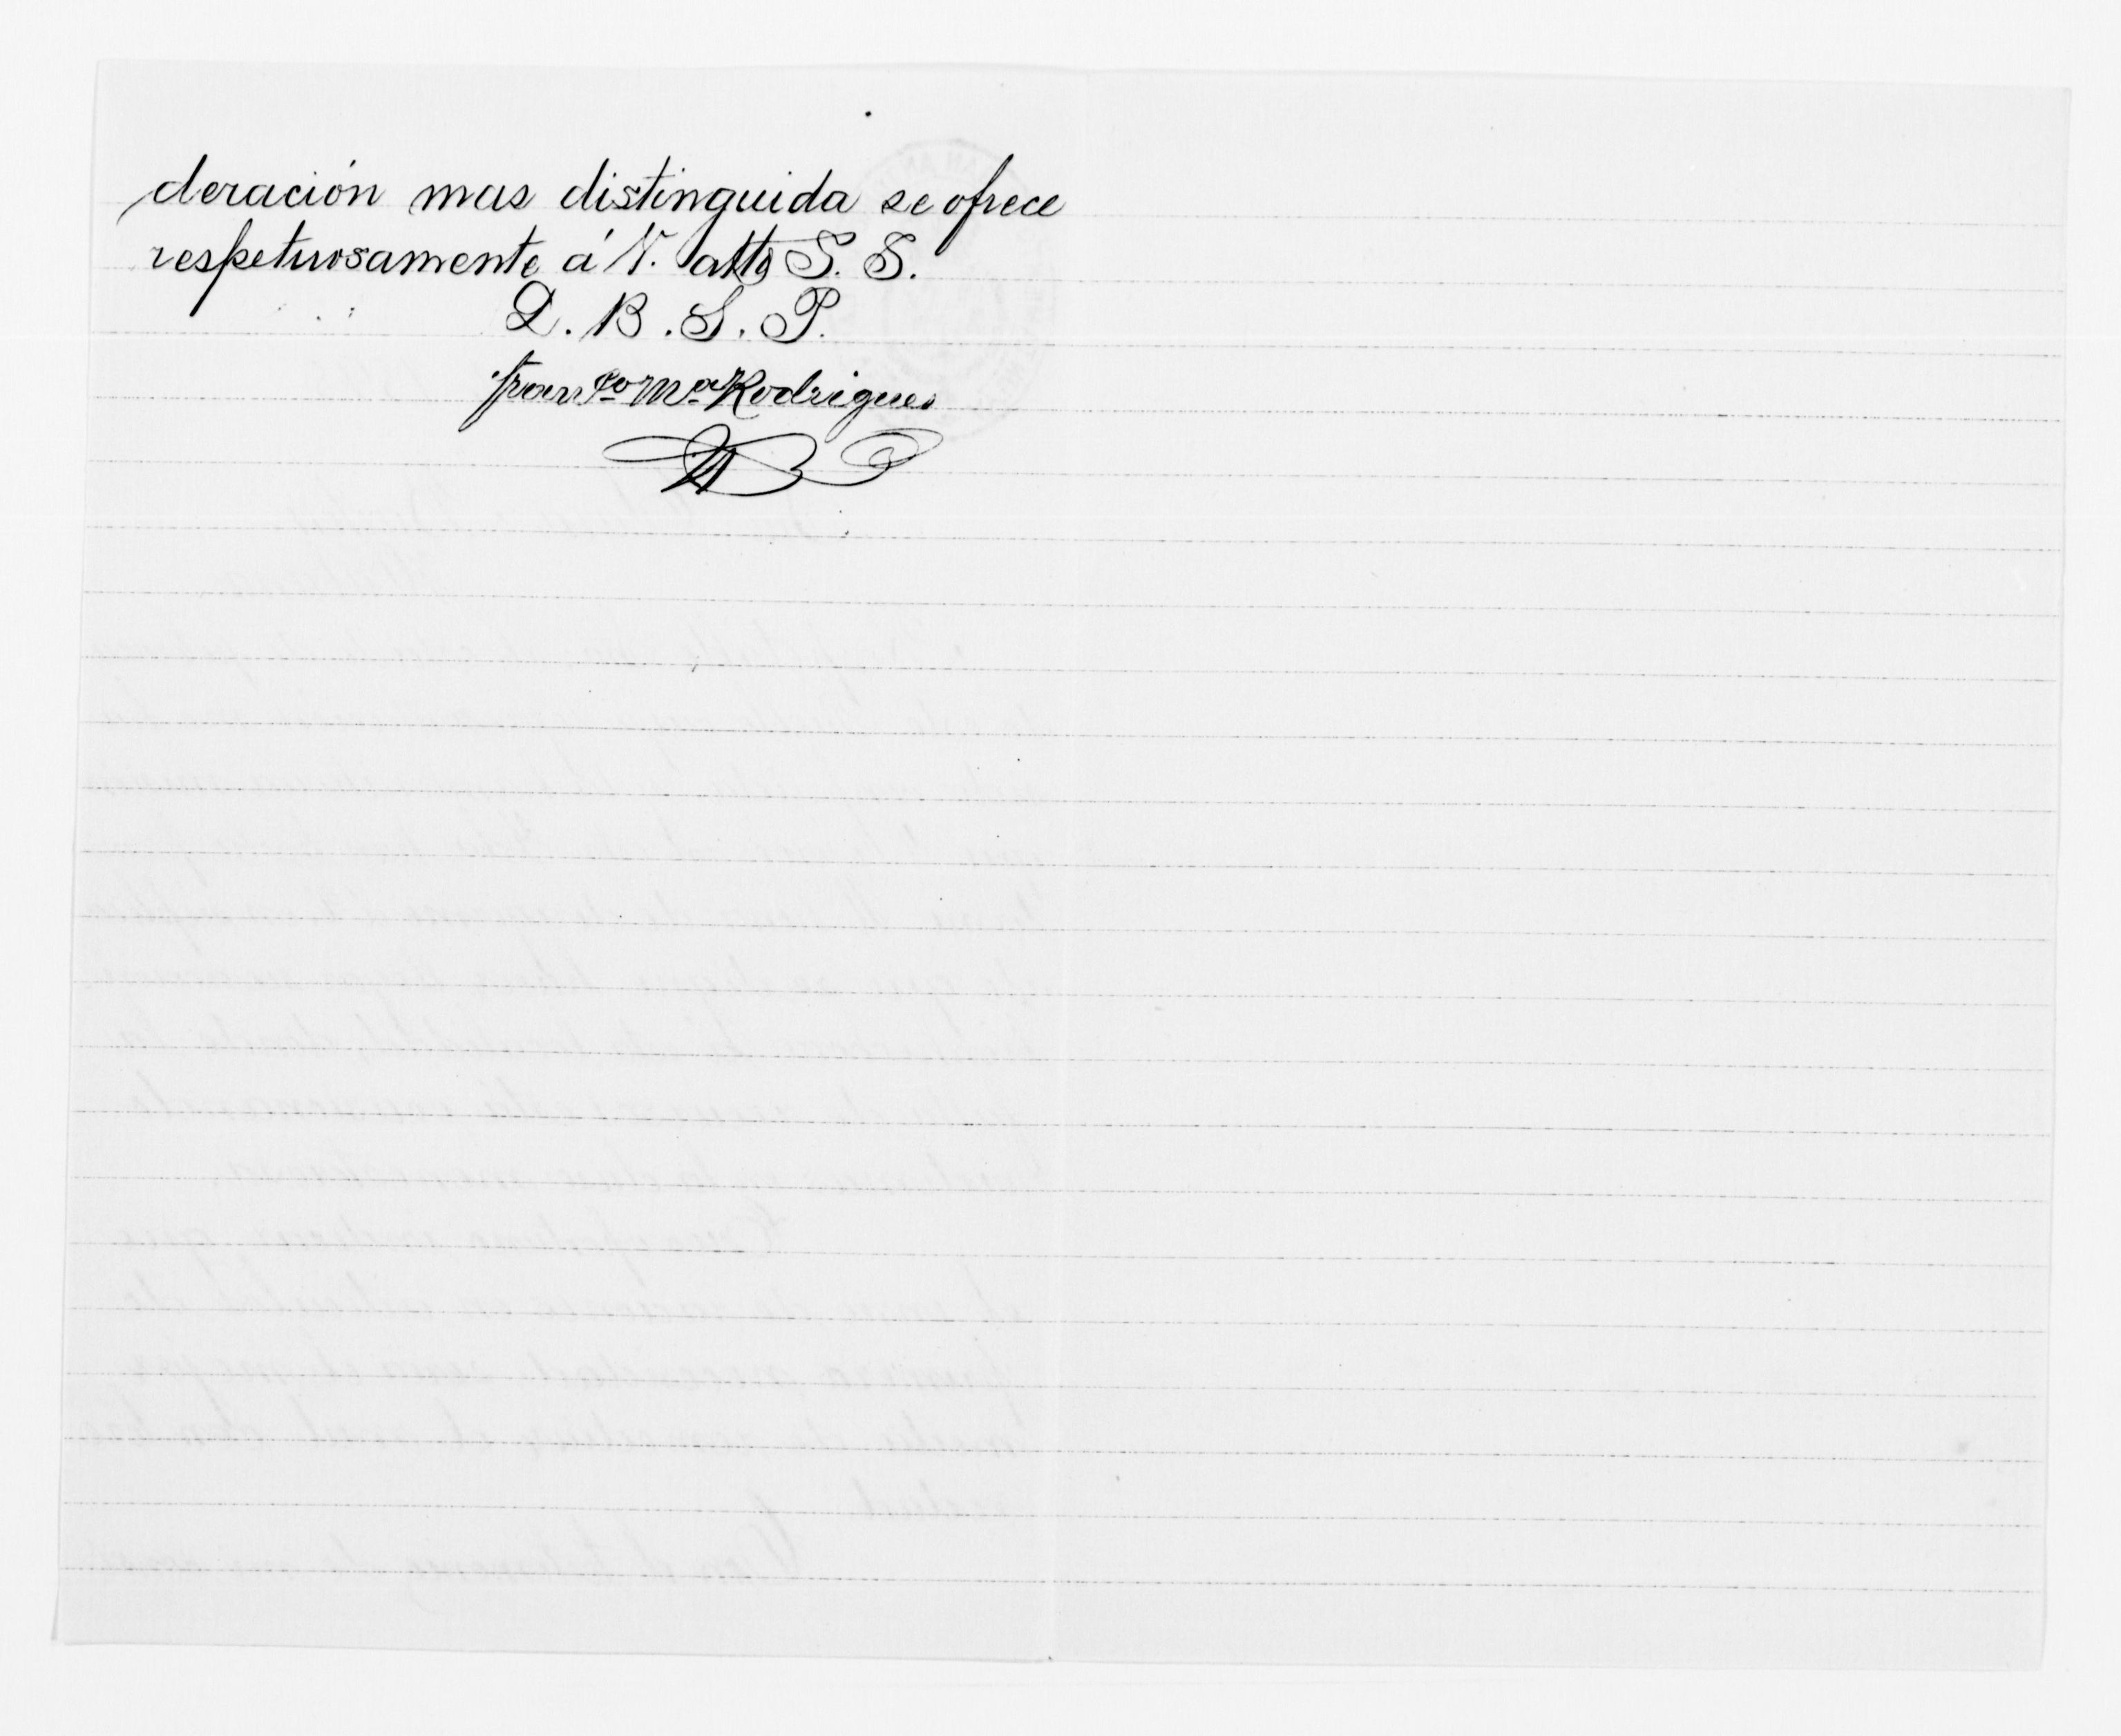 deración mas distinguida se ofrece
respetuosamente á V. atto S. S.
Q. B. S. P.
Franco Ma Rodrigues